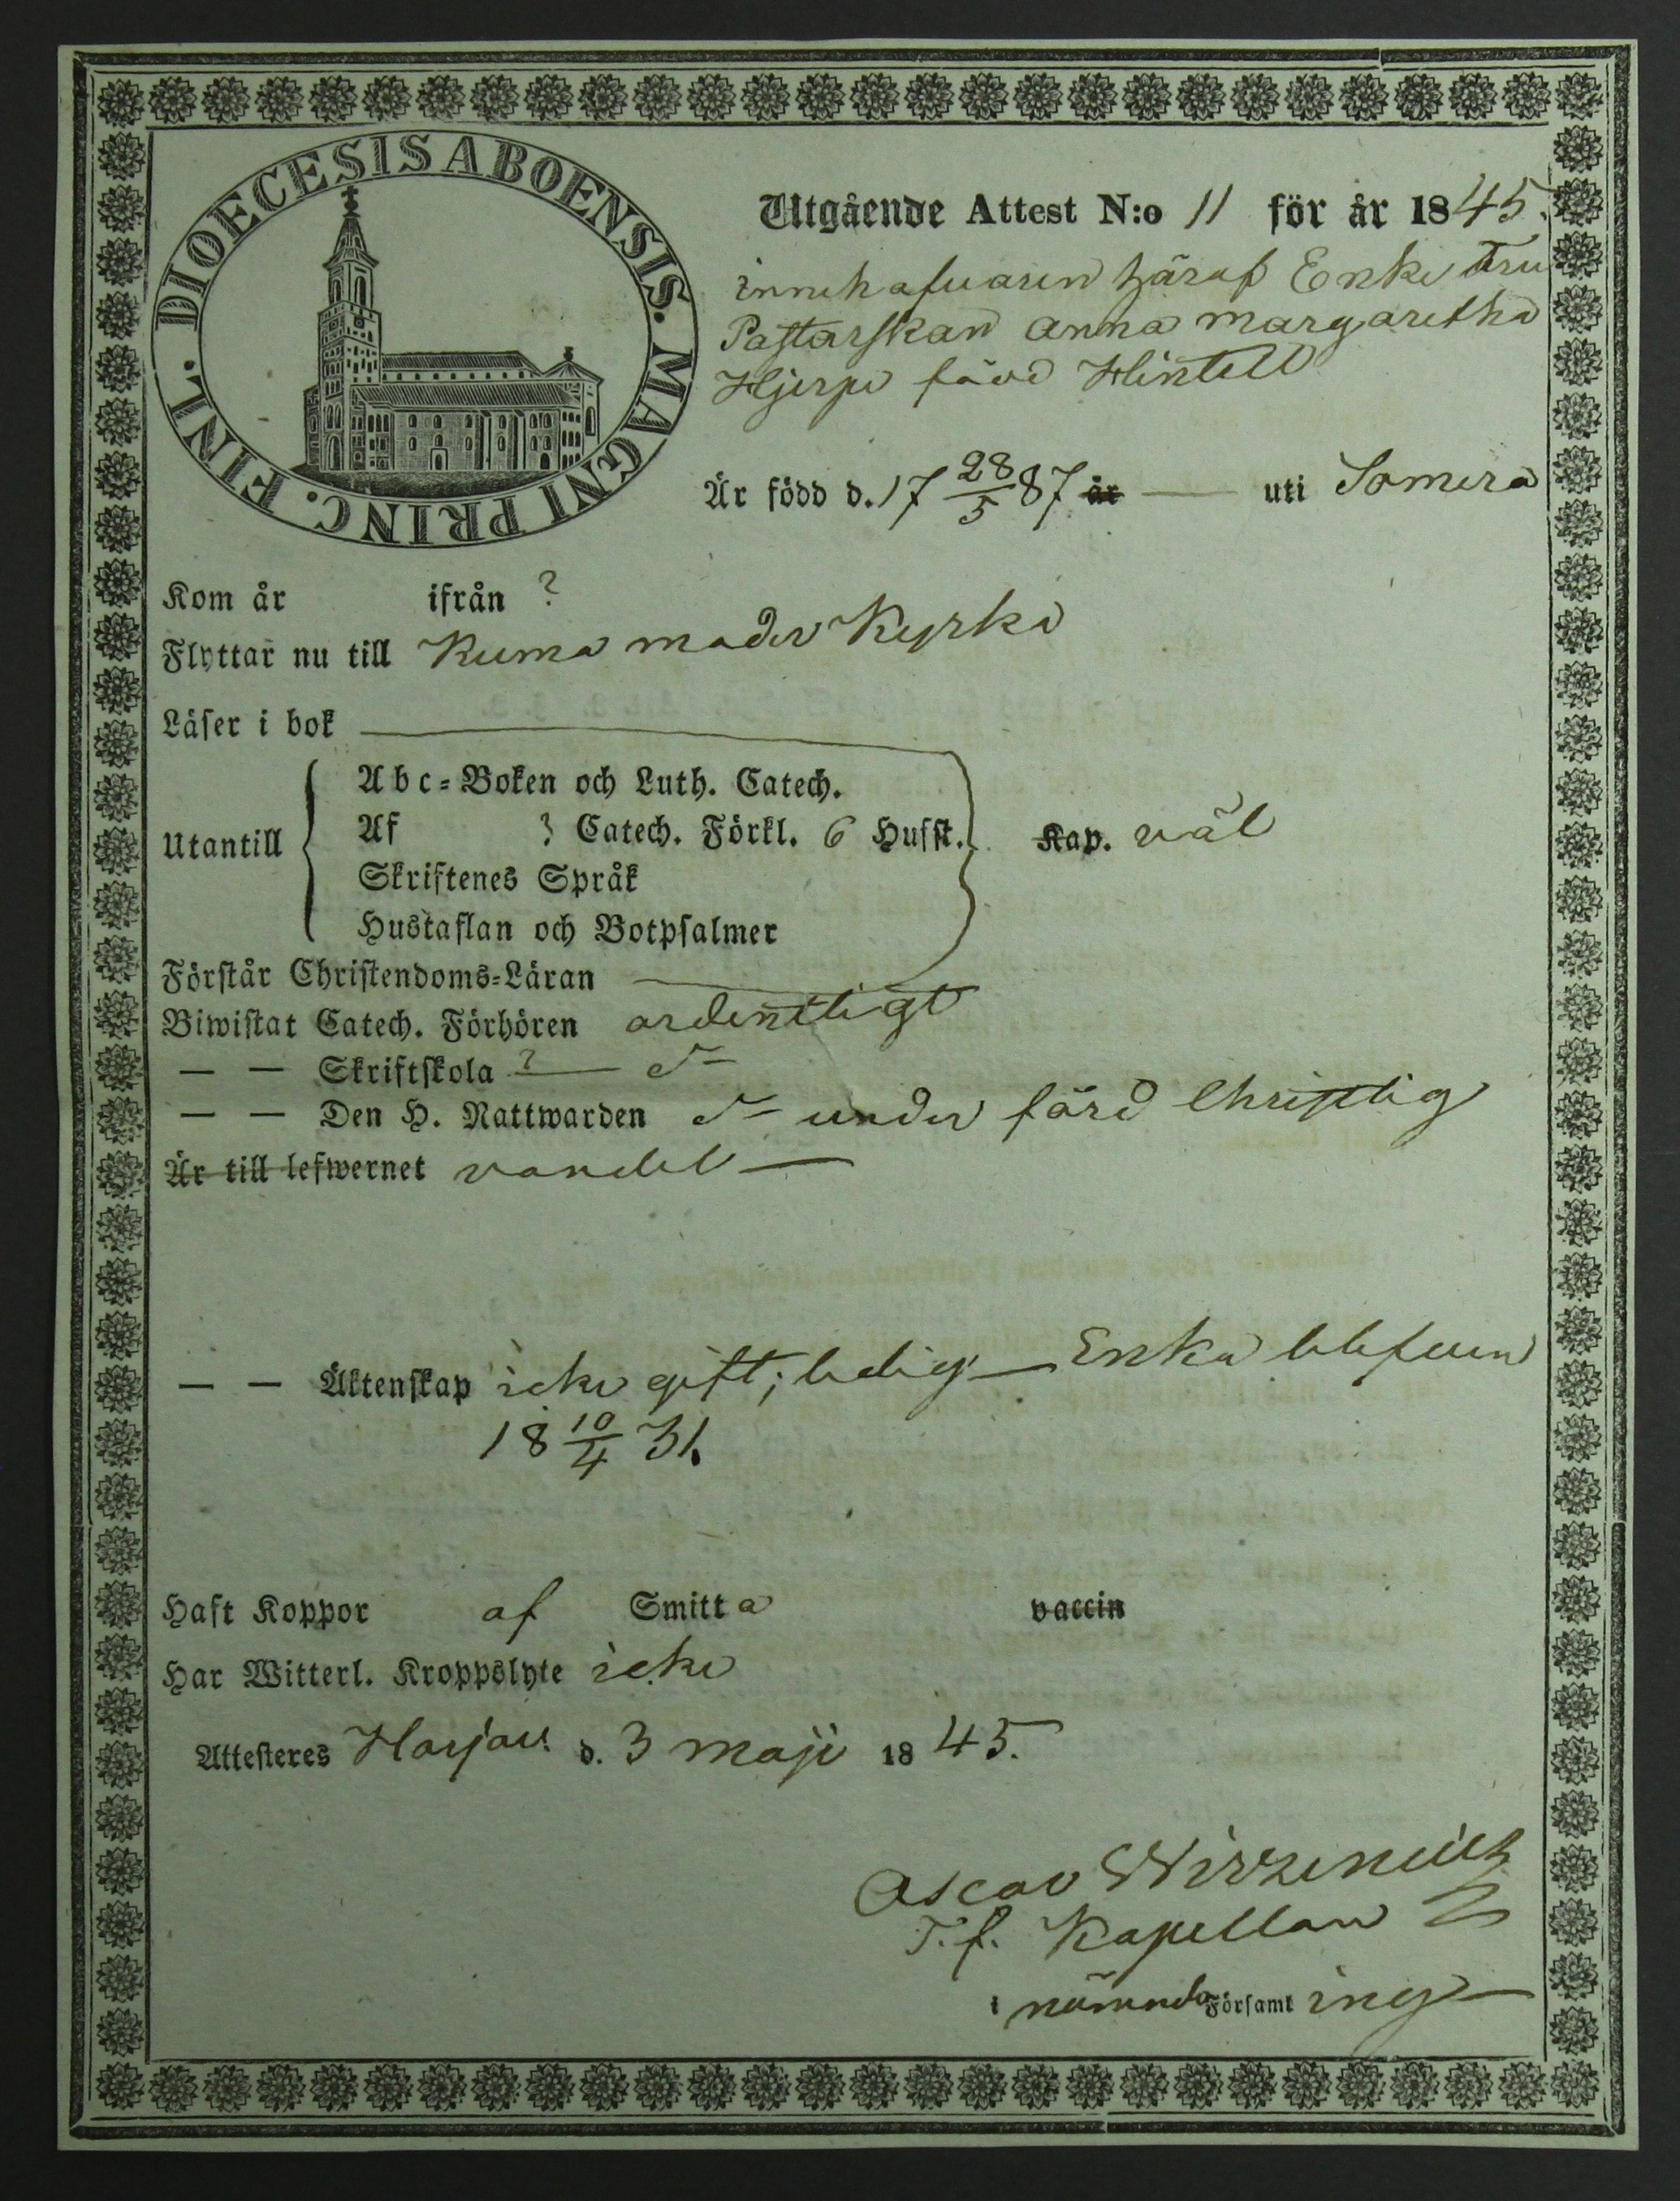 DIOECESIS ABOENSIS. MAGNI PRINC. FINL.
Utgående Attest N:o 11 för år 1845.
innehafvaren häraf Enke Fru
Pastorskan Anna Margaretha
Hjerpe född Hintell
Är född d. 17 28/5 87 år — uti Somero
Kom år ifrån ?
Flyttar nu till Kumo moder Kyrka
Läser i bok
Utantill
Abc-Boken och Luth. Catech.
Af } Catech. Förkl. 6 Husst. Kap. väl
Skriftenes Språk
Hustaflan och Botpsalmer
Förstår Christendoms-Läran
Biwistat Catech. Förhören ordentligt
— — Skriftskola ? — d:o
— — Den H. Nattwarden d:o under förd Christlig
Är till lefwernet vandel —
— — Äktenskap icke gift; ledig — Enka blefven
18 10/4 31.
Haft Koppor af Smitta vaccin
Har Witterl. Kroppslyte icke
Attesteres Harjav. d. 3 Maji 1845.
Oscar Wirzenius
T.f. Kapellan
i nämnda Församling